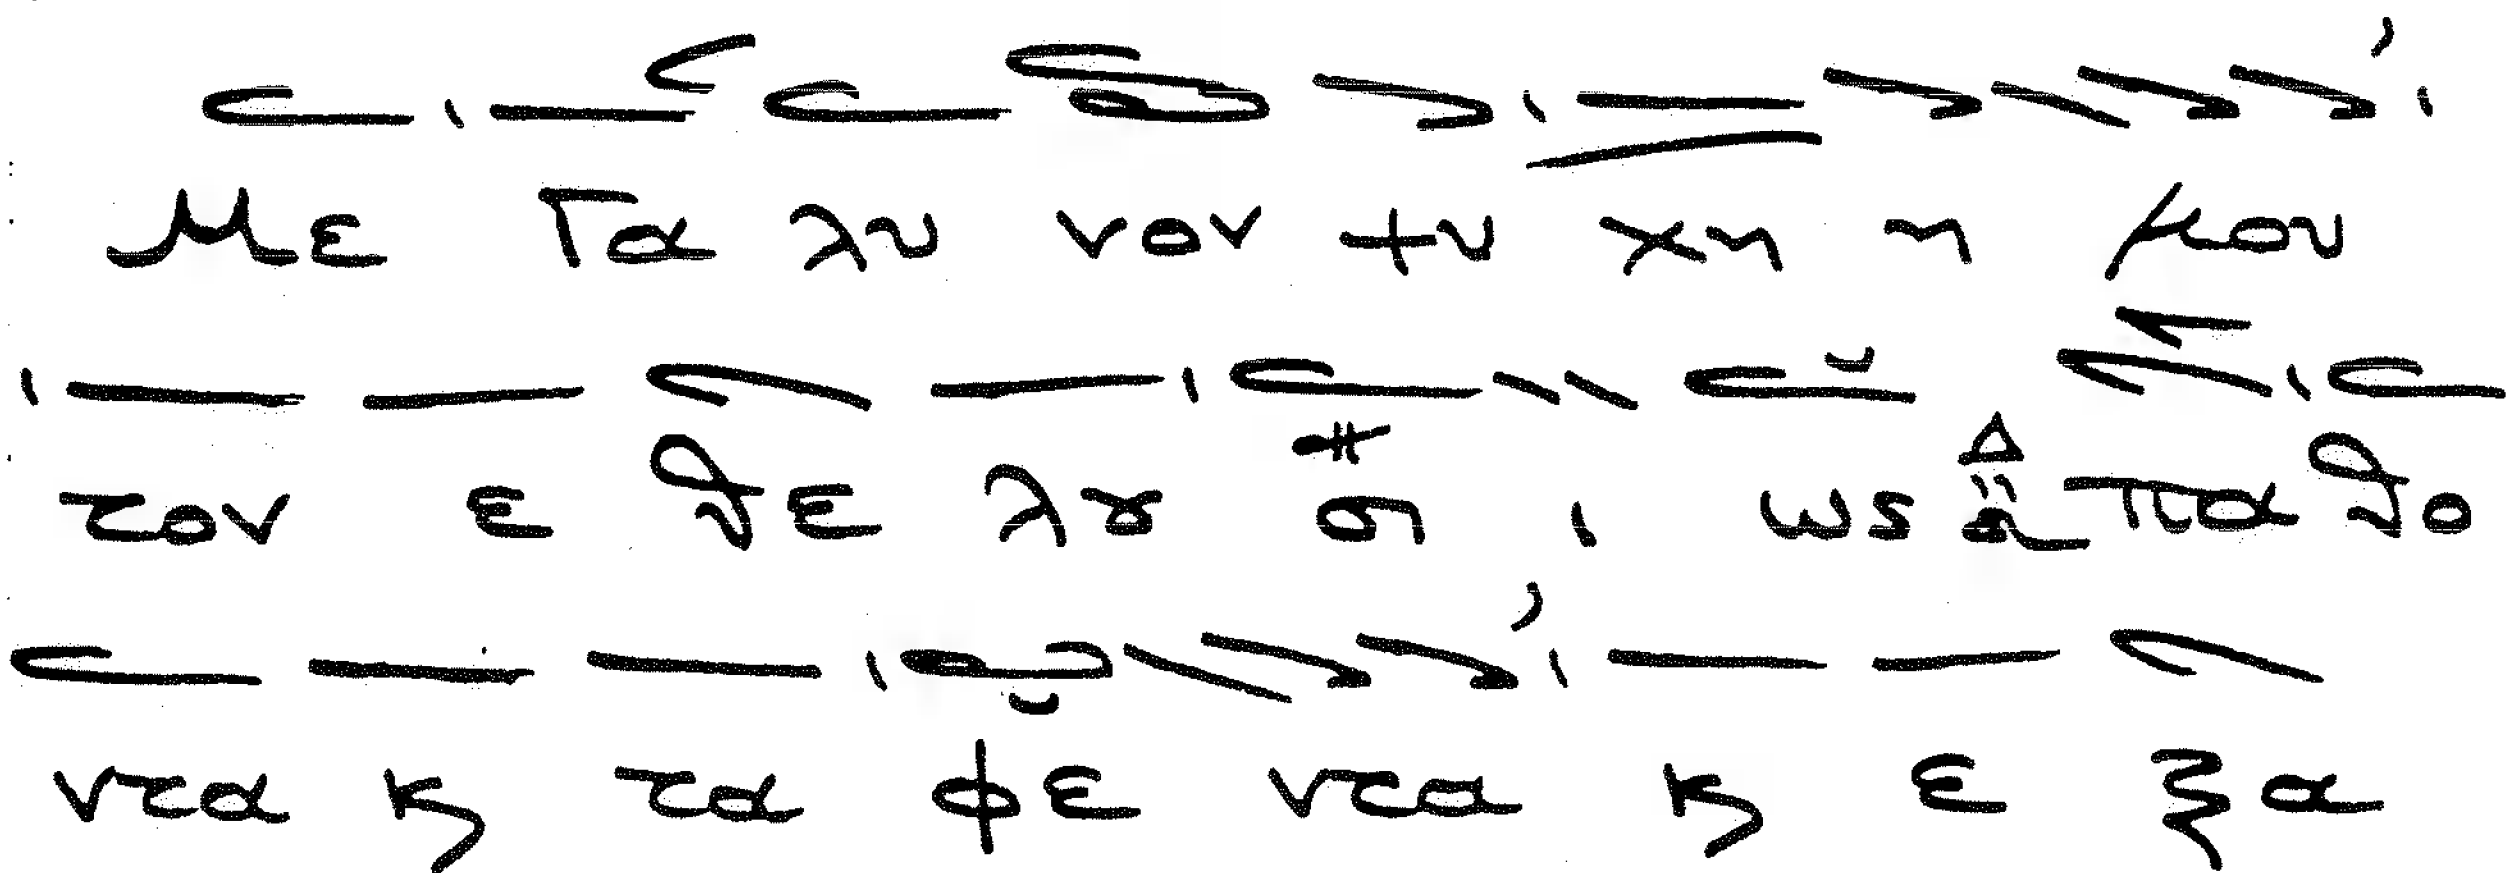 Με γα λυ νον ψυ χη η μου
τον ε θε λȣ σι ως α πα θο
ντα ϗ τα φε ντα ϗ ε ξα